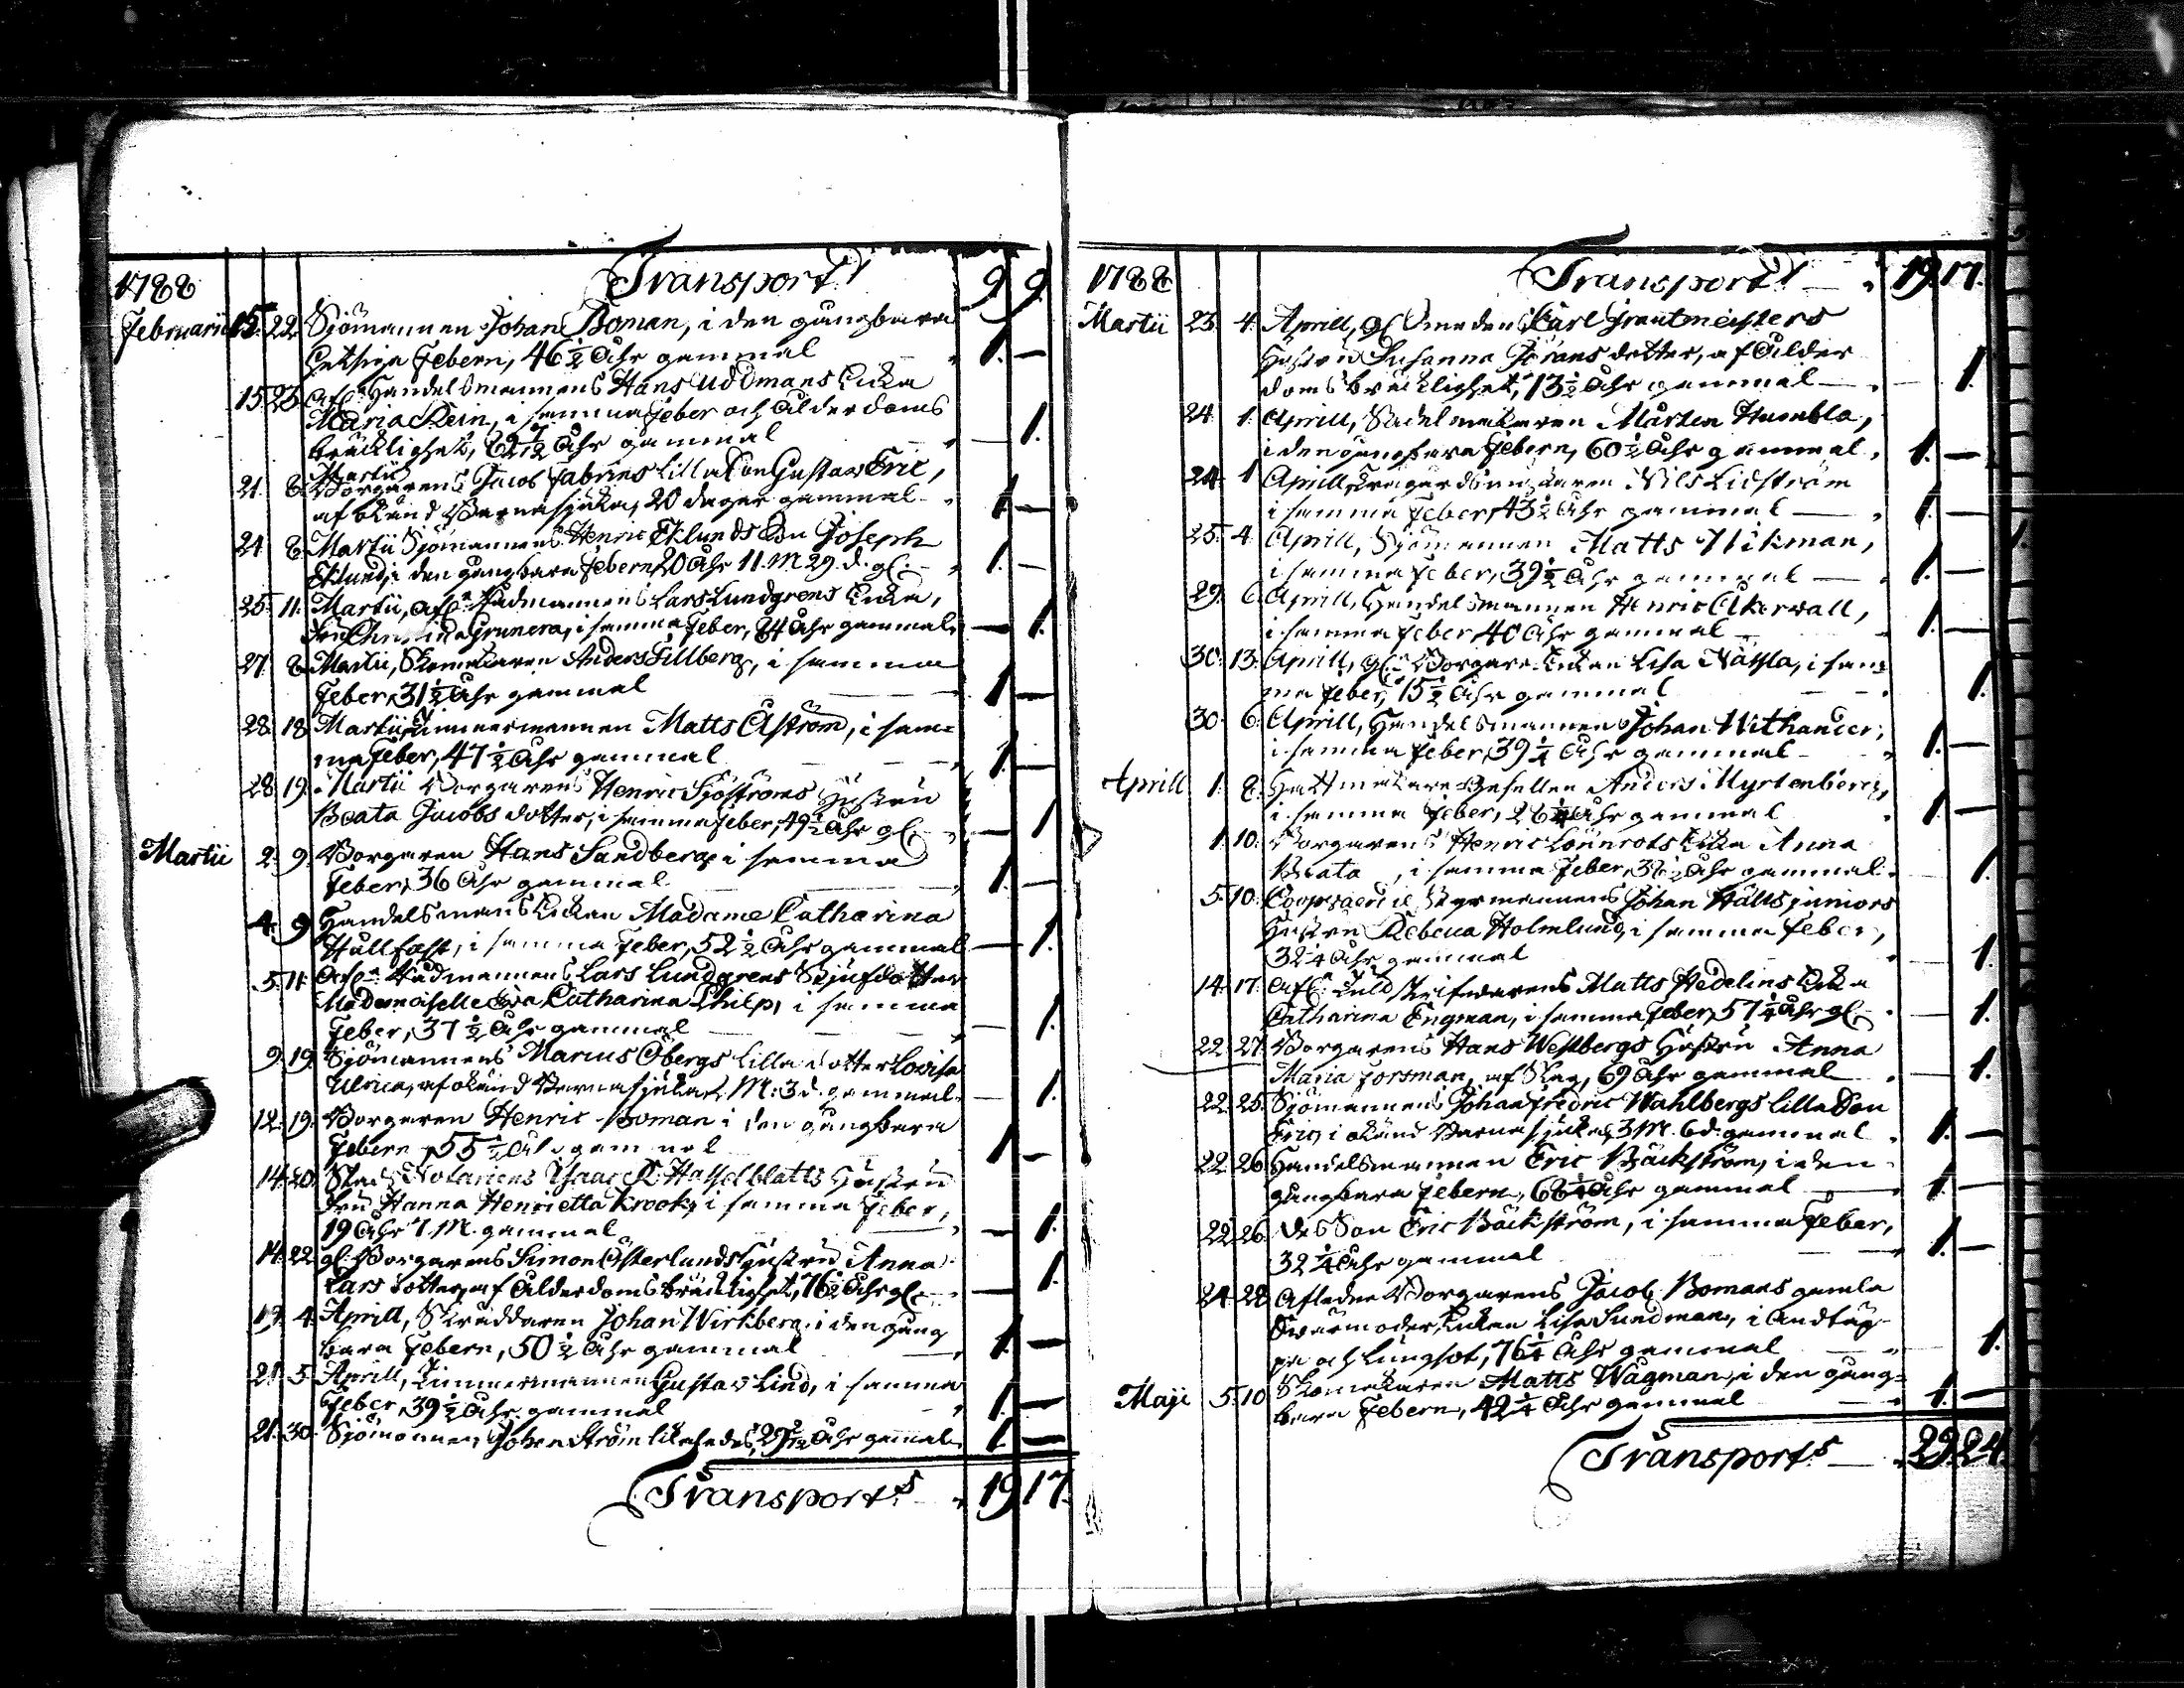 1788 Transport 9 9
Februarii 15. 22. Sjömannen Johan Boman, i den gångbara
hetsiga Febern, 46 1/2 Åhr gammal 1. —
15. 23. Afl. Handelsmannens Hans Uddmans Enka
Maria Rein, i samma Feber och Ålderdoms
bräcklighet, 62 7/12 Åhr gammal — 1.
Martii
21. 8. Borgarens Jacob Fabrins lilla Son Gustav Eric,
af okänd Barnasjuka, 20 dagar gammal 1. —
24 8. Martii Sjömannens Henric Eklunds Son Joseph
Eklund, i den gångbara Febern 20 Åhr 11. M. 29. d. gl. 1. —
25. 11. Martii, Afl. Rådmannens Lars Lundgrens Enka,
Fru Christina Grunera, i samma Feber, 84 Åhr gammal — 1.
27. 8. Martii, Skomakaren Anders Tillberg, i samma
Feber, 31 1/2 Åhr gammal 1. —
28. 18. Martii, Timmermannen Matts Åström, i sam=
ma Feber, 47 1/2 Åhr gammal 1. —
28. 19. Martii Borgarens Henric Sjöströms Hustru
Beata Jacobs dotter, i samma Feber, 49 1/2 Åhr gl. — 1.
Martii 2. 9. Borgaren Hans Sandberg, i samma
Feber, 36 Åhr gammal 1. —
4. 9. Handelsmans Enkan Madame Catharina
Hallfast, i samma Feber, 52 1/2 Åhr gammal — 1.
5. 11. Afl. Rådmannens Lars Lundgrens Stjufdotter
Mademoiselle Eva Catharina Chilp, i samma
Feber, 37 1/2 Åhr gammal — 1.
9. 19. Sjömannens Marius Öbergs lilla dotter Lovisa
Ulrica, af okänd Barnasjuka, M. 3 d. gammal — 1.
12. 19. Borgaren Henric Boman i den gångbara
Febern, 55 1/2 Åhr gammal 1. —
14. 20. Stads Notariens Isaac R. Hasselblatts Hustru
Fru Hanna Henrietta Krook, i samma Feber,
19 Åhr 7. M. gammal — 1.
14. 22 gl. Borgarens Simon Österlunds Hustru Anna
Lars dotter, af Ålderdoms bräcklighet, 76 1/2 Åhr gl. — 1.
19. 4. Aprill, Skräddaren Johan Wirkberg, i den gång
bara Febern, 50 1/2 Åhr gammal 1. —
21. 5. Aprill, Timmermannen Gustav Lind, i samma
Feber, 39 1/2 Åhr gammal 1. —
21. 30. Sjömannen Johan Ström likaledes, Åhr gamal 1. —
Transport 19 17.
1788 Transport 19. 17.
Martii 23. 4. Aprill, gl. Smeden Carl Grantmeisters
Hustru Susanna Görans dotter, af Ålder
doms bräcklighet, 73 1/2 Åhr gammal — 1.
24. 1. Aprill, Sadelmakaren Mårten Humbla,
i den gångbara Febern, 60 1/2 Åhr gammal. 1. —
24. 1 Aprill, Nils Lidström
i samma Feber, 43 1/2 Åhr gammal 1. —
25. 4. Aprill, Sjömannen Matts Wikman,
i samma Feber, 39 1/2 Åhr gammal 1. —
29. 6. Aprill, Handelsmannen Henric Åkerwall,
i samma Feber, 40 Åhr gammal 1. —
30. 13. Aprill, gl. Borgare Enkan Lisa Nässla, i sam=
ma Feber, 75 1/2 Åhr gammal 1.
30. 6. Aprill, Handelsmannen Johan Withander,
i samma Feber, 39 1/4 Åhr gammal 1. —
Aprill 1. 8. Hattmakare Gesellen Anders Myrtenberg,
i samma Feber, 26 1/4 Åhr gammal 1. —
1. 10. Borgarens Henric Lönnrots Enka Anna
Beata , i samma Feber, Åhr gammal. 1.
5. 10. Coopvaerdie Styrmannens Johan Hälls juniors
Hustru Rebecca Holmlund, i samma Feber,
32 1/4 Åhr gammal 1.
14. 17. Afl. Tullskrifvarens Matts Hedelins Enka
Catharina Engman, i samma Feber, 57 1/4 Åhr gl. — 1.
22. 27. Borgarens Hans Westbergs Hustru Anna
Maria Forsman, af Slag, 69 Åhr gammal — 1.
22. 25. Sjömannens Johan Fredric Wahlbergs lilla Son
Eric, i okänd Barnasjuka, 3 M. 6 d. gammal 1. —
22. 26. Handelsmannen Eric Bäckström, i den
gångbara Febern, 68 1/4 Åhr gammal 1. —
22. 26. Des Son Eric Bäckström, i samma Feber,
32 1/4 Åhr gammal 1. —
24. 28. Afledne Borgarens Jacob Bomans gamla
Svärmoder, Enkan Lisa Sundman, i Andtäp=
pa och Lungsot, 76 1/4 Åhr gammal 1.
Maji 5. 10 Skomakaren Matts Wågman, i den gång=
bara Febern, 42 1/4 Åhr gammal 1. —
Transport 29. 24.